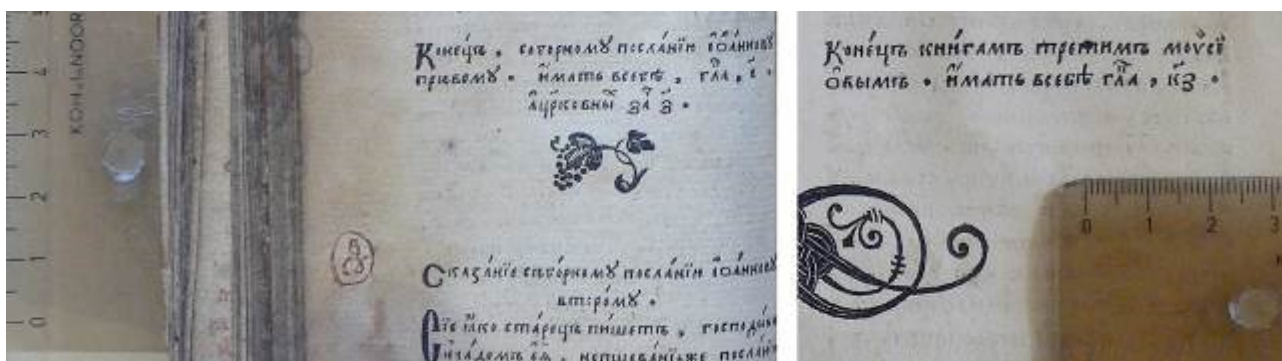 KOH-I-NOOR
4
3
2
1
0
Коне́цъ, соборному посла́нїю їѡа́ннову
пръвому. и҆мать всебѣ, гл҃а, є҃.
а҆ цр҃ковны за҃ з҃.
Сказа́нїе съборному посла́нїю їѡа́ннову
второ́му.
Сїе ꙗ҆ко ста́рецъ пи́шетъ, госпо́ди
и҆ча́домъ є҆ѧ҆, непщева́нїже посла́нї
Коне́цъ кни́гамъ тре́тимъ моѵсе́ї
ѡ҆вымъ. и҆мать всебѣ гл҃а, к҃з.
0 1 2 3